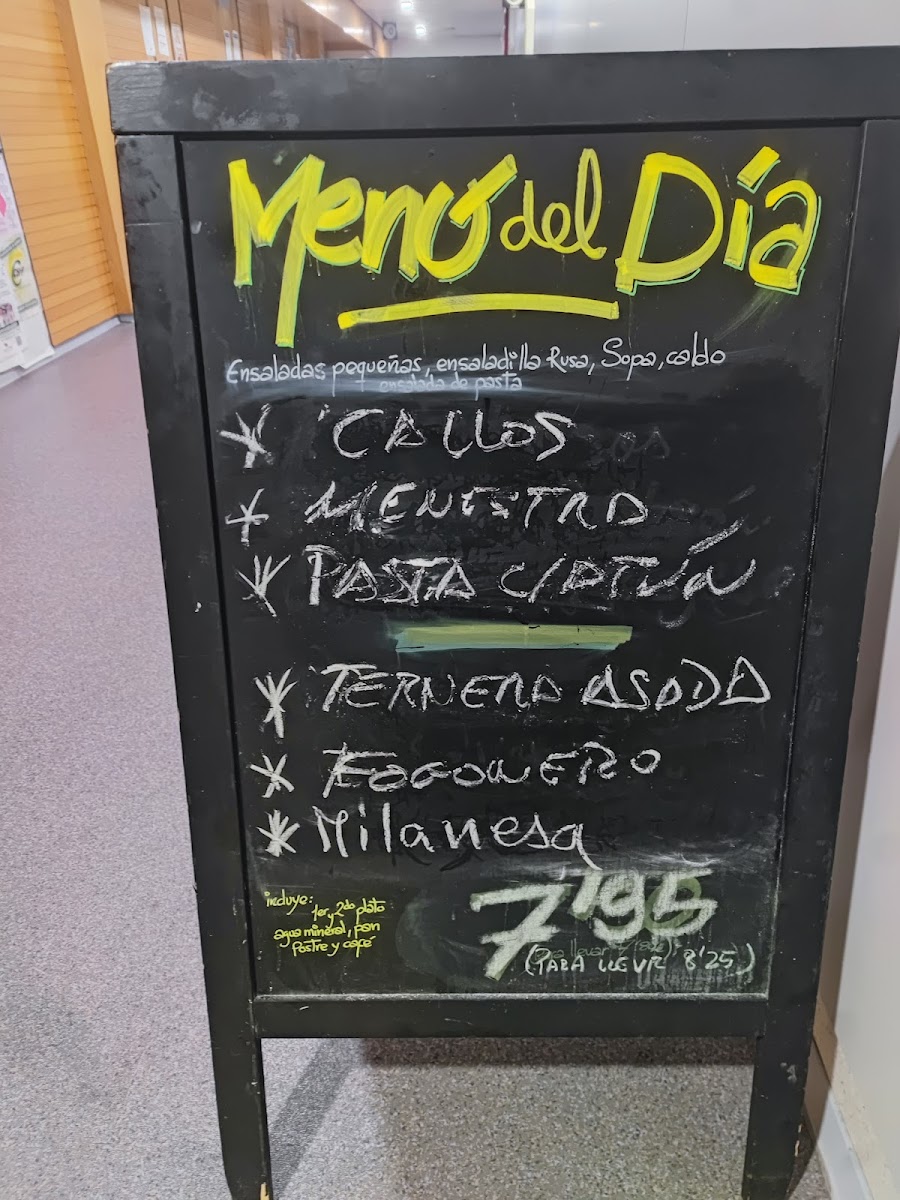 Menú del Día
Ensaladas pequeñas, ensaladilla Rusa, Sopa, caldo
ensalada de pasta
* CALLOS
* MENESTRA
* PASTA C/ATÚN
* TERNERA ASADA
* FOGONERO
* Milanesa
incluye:
1er y 2do plato
agua mineral, pan
Postre y café
7'95
(PARA LLEVR 8'25)